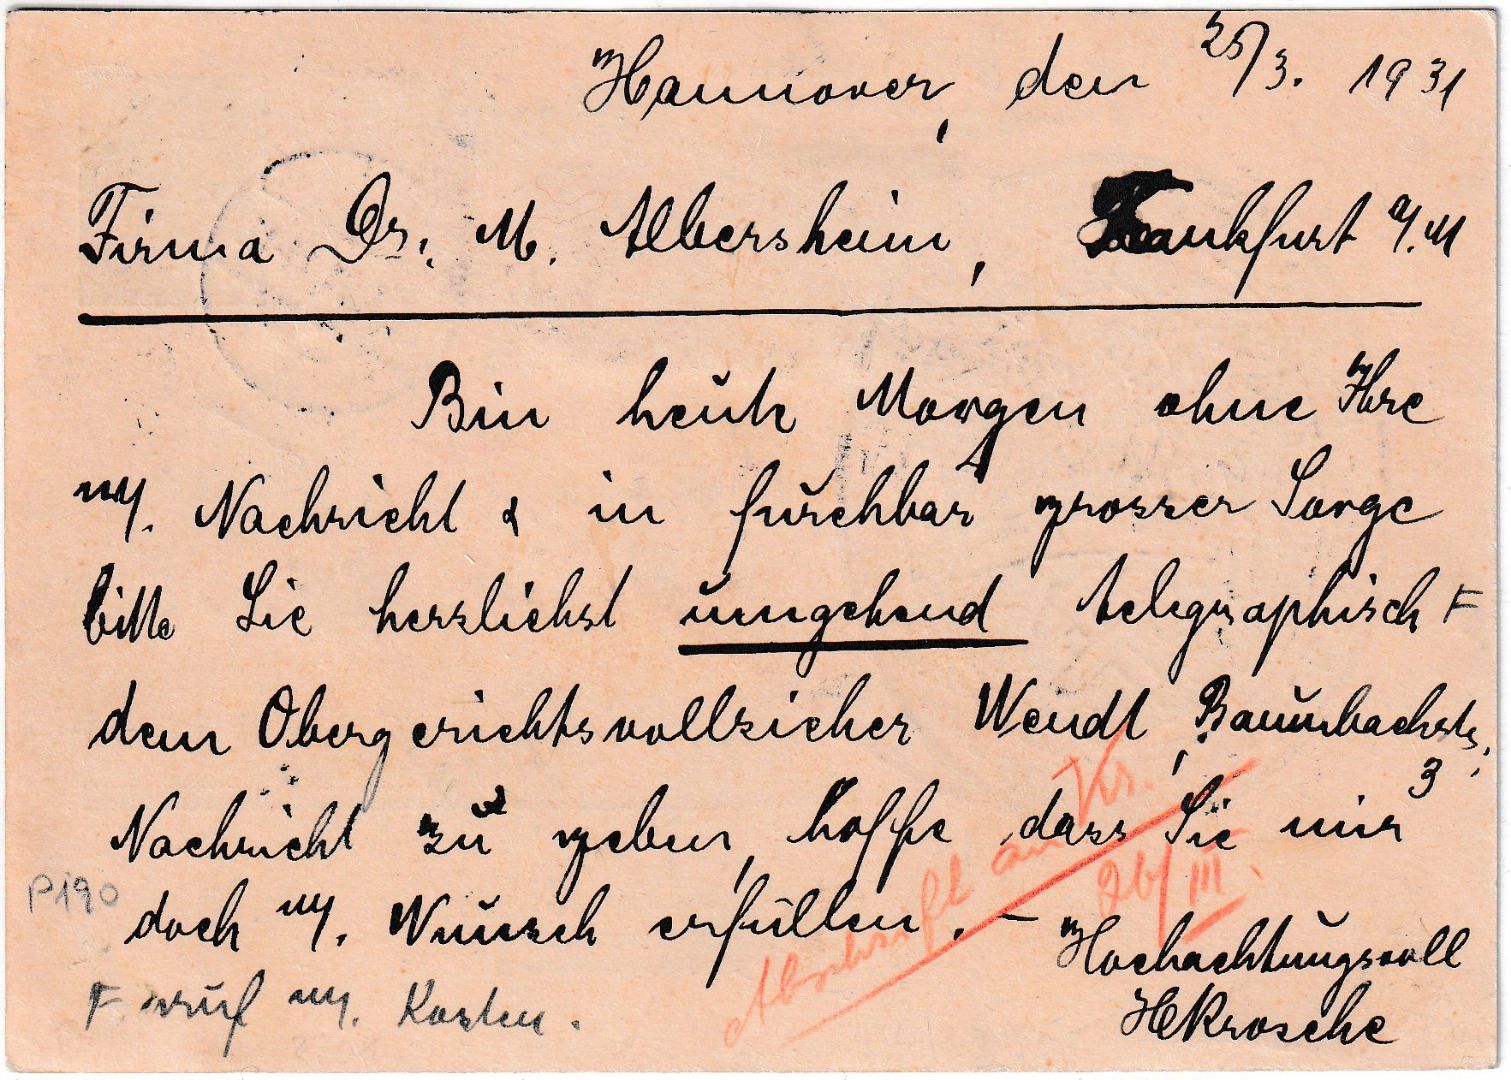 Hannover, den 25/3. 1931
Firma Dr. M. Albersheim, Frankfurt a/. M
Bin heute Morgen ohne Ihre
w/. Nachricht & in furchbar grosser Sorge
bitte Sie herzlichst umgehend telegraphisch F
dem Obergerichtsvollzieher Wendt, Baumbachstr.
3
Nachricht zu geben, hoffe dass Sie mir
doch m/. Wunsch erfüllen. –
Hochachtungsvoll
HKrosche
F auf m/. Kosten.
P190
Abschrift an Kr.
26/III.